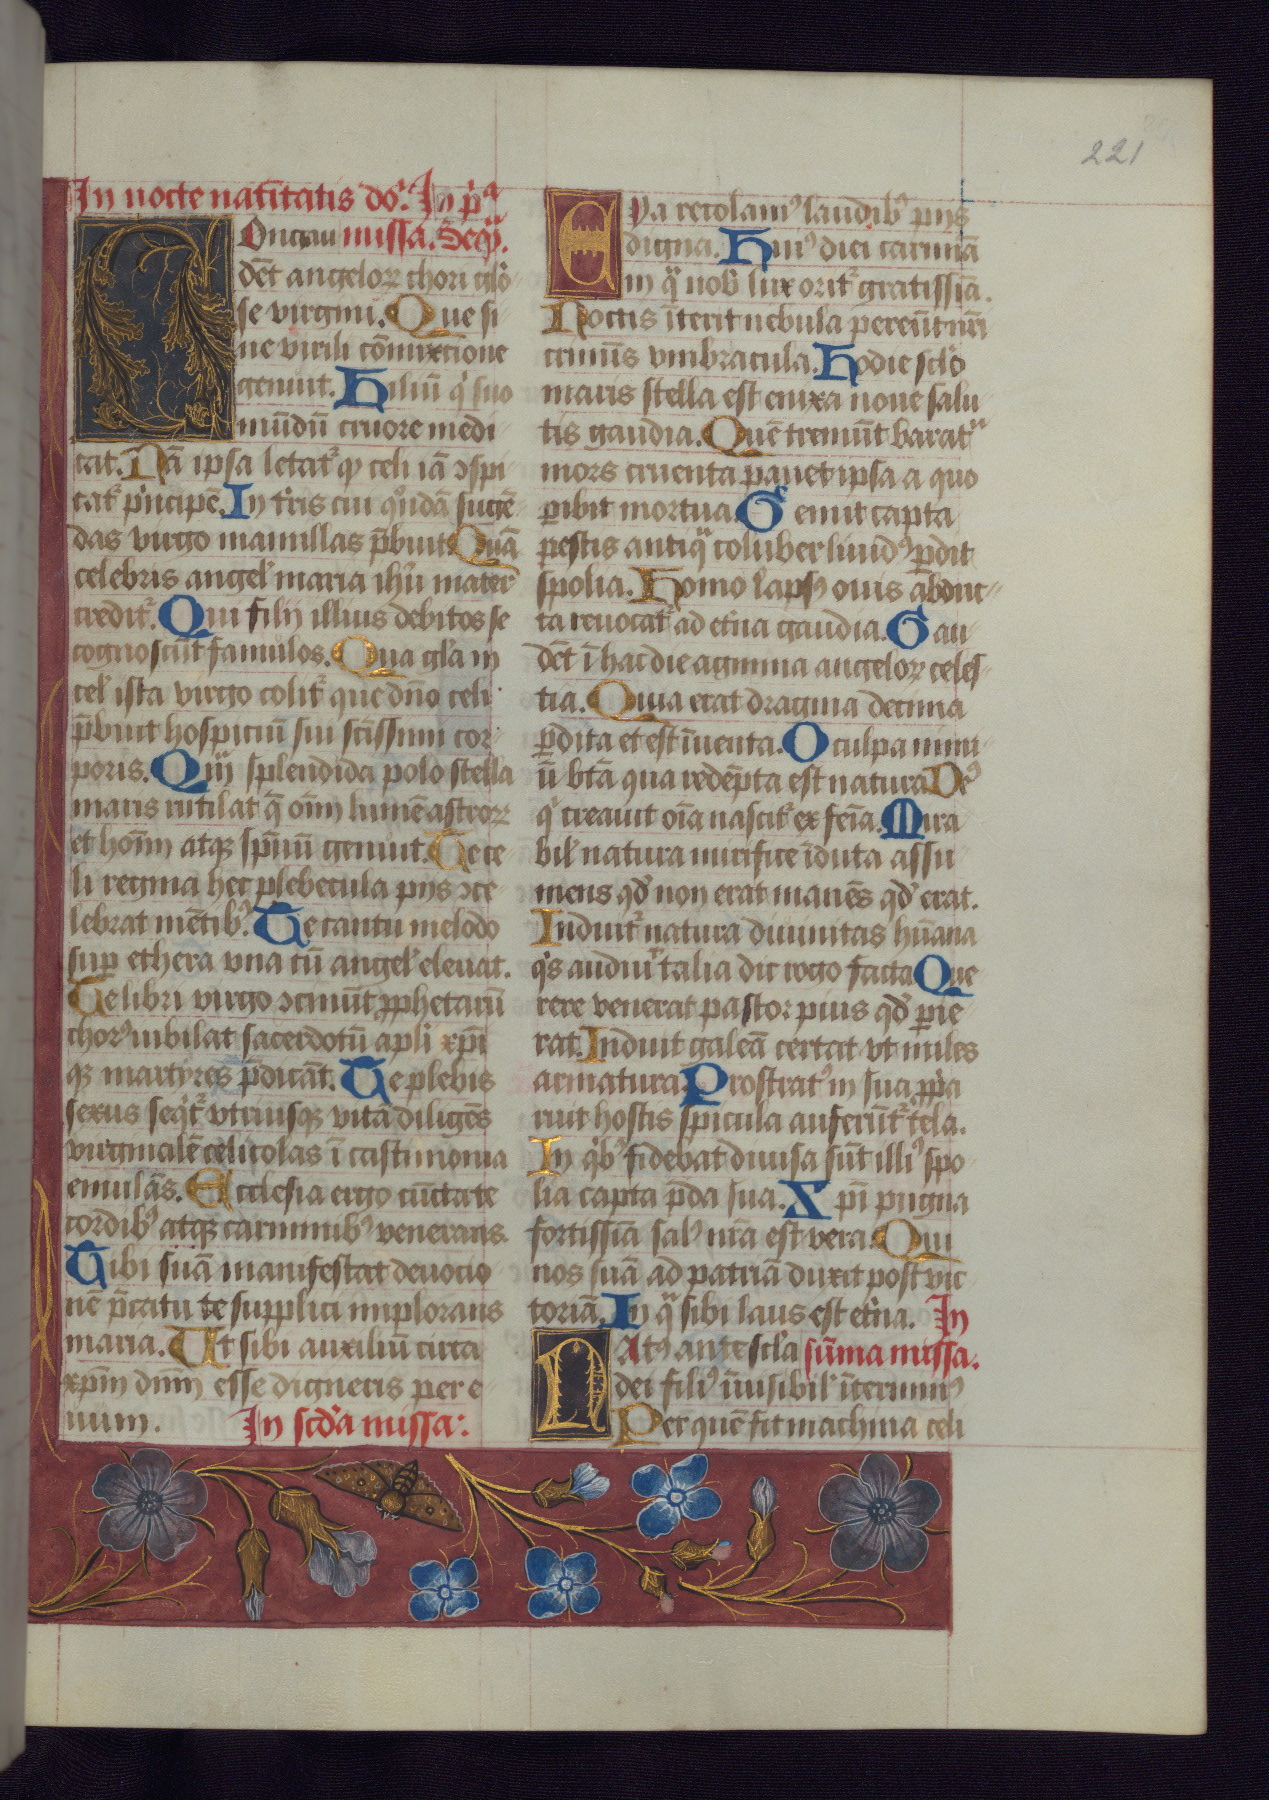 221
In nocte natītatis do. In pa
missa. Seq.
Ongau
det angelorꝝ chori glo
se virgini. Que si
ne virili cōmixtione
genuit. Filiū q suo
mūdū cruore medi
cat. Nā ipsa letatꝰ qꝫ celi iā ɔspi
cat pncipē. In tris cui qndā sugē
das virgo mamillas p̄buit Quā
celebris angel maria ihū mater
credit. Qui filij illius debitos se
cognoscūt famulos. Qua gla in
cel ista virgo colit que dno celi
p̄buit hospiciū sui sctissimi cor
poris. Qm splendida polo stella
maris rutilat q̄ oīm lumē astrorꝝ
et hoīm atqꝫ spūū genuit. Te ce
li regina hec plebecula pijs ɔce
lebrat mētibꝰ Te cantu melodo
sup ethera una cū angel eleuat.
Te libri virgo ɔcinūt pphetarū
chorꝰ iubilat sacerdotū apli xp̄i
qꝫ martyres p̄dicāt. Te plebis
sexus seqt utriusqꝫ vitā diligēs
virginalē celicolas ī castimonia
emulās. Ecclesia ergo cūcta te
cordibꝰ atqꝫ carminibꝰ venerans.
Tibi suā manifestat deuocio
nē p̄catu te supplici implorans
maria. Ut sibi auxiliū circa
xp̄m dnm esse digneris per e
uum. In scda missa:
Eya recolamꝰ laudibꝰ pijs
digna. Huiꝰ diei carmiā
in q nob lux orit gratissīa.
Noctis īterit nebula pereūt nri
crimīs vmbracula. Hodie sclo
maris stella est enixa noue salu
tis gaudia. Quē tremūt barat
mors cruenta pauet ipsa a quo
pibit mortua. Gemit capta
pestis antiq coluber liuidꝰ pdit
spolia. Homo lapsꝰ ouis abduc
ta reuocat ad etna gaudia. Gau
dēt ī hac die agmina angelorꝝ celes
tia. Quia erat dragma decima
pdita et est īuenta. O culpa nimi
ū bta qua redēpta est natura Deꝰ
q creauit oīa nascit ex fēīa. Mira
bil natura mirifice īduta assu
mens qd non erat manēs qd erat.
Induit natura diuinitas hūana
qs audiuit talia dic rogo facta Que
rere venerat pastor pius qd pie
rat. Induit galeā certat vt miles
armatura. Prostratꝰ in sua ppa
ruit hostis spicula auferūt tela.
In qbꝰ fidebat diuisa sūt illiꝰ spo
lia capta p̄da sua. Xpi pugna
fortissīa salꝰ nra est vera. Qui
nos suā ad patriā duxit post vic
toriā. In q sibi laus est etna. In
Natꝰ ante scla sūma missa.
dei filiꝰ īuisibil īterminꝰ
Per quē fit machina celi